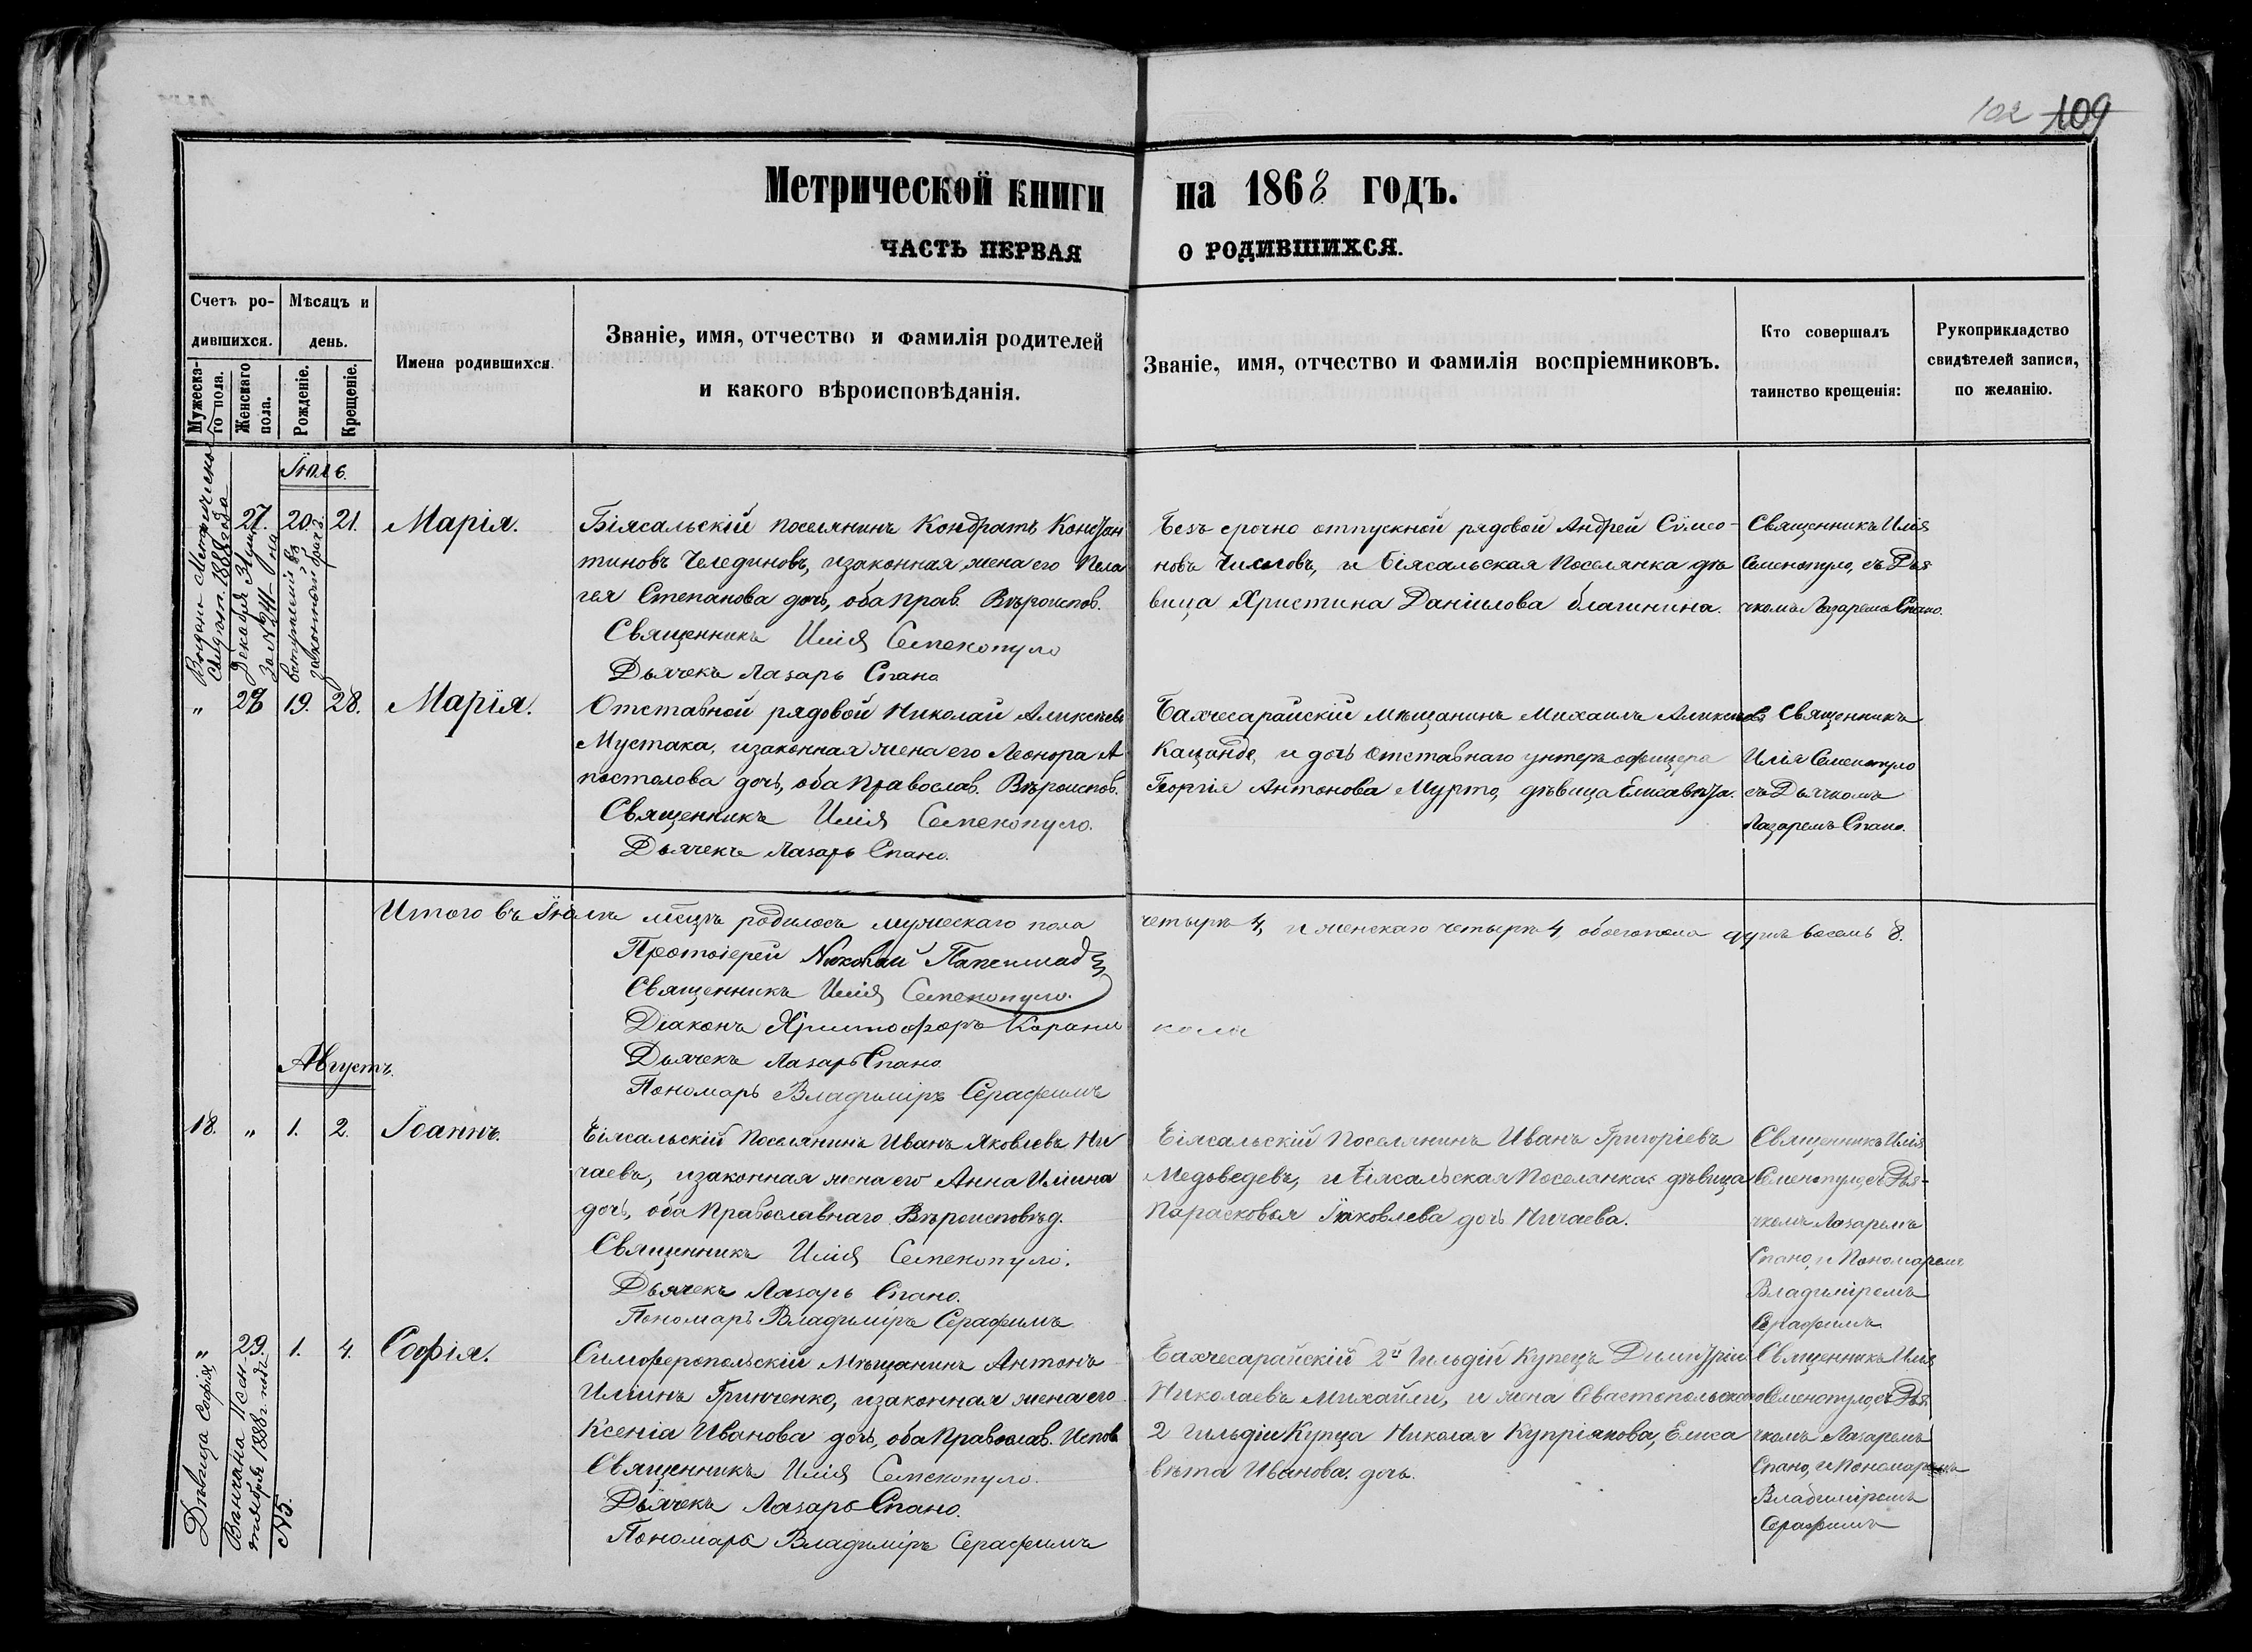 102 109
Метрической книги на 1868 годъ.
ЧАСТЬ ПЕРВАЯ О РОДИВШИХСЯ.
Счетъ ро-
дившихся.
Мужеска-
го пола.
Женскаго
пола.
Мѣсяцъ и
день.
Рожденіе.
Крещеніе.
Имена родившихся.
Званіе, имя, отчество и фамилія родителей
и какого вѣроисповѣданія.
Званіе, имя, отчество и фамилія воспріемниковъ.
Кто совершалъ
таинство крещенія:
Рукоприкладство
свидѣтелей записи,
по желанію.
Іюль.
27. 20. 21. Марія.
Біясальскій поселянинъ Кондратъ Констан
тиновъ Челединовъ, изаконная жена его Пела
гея Степанова дочь, оба прав. Вѣроиспов.
Священникъ Илія Семенопуло
Дьячекъ Лазарь Спано
Безъ срочно отпускной рядовой Андрей Сѵмео-
новъ Числовъ, и Біясальская Поселянка дѣ
вица Христина Даніилова
Священникъ Илія
Семенопуло, съ Дья
чкомъ Лазаремъ Спано.
" 28 19. 28. Марія.
Отставной рядовой Николай Аликсѣевъ
Мустака, изаконная жена его Леонора А
постолова дочь, оба Православ. Вѣроиспов.
Священникъ Илія Семенопуло.
Дьячекъ Лазарь Спано.
Бахчесарайскій Мѣщанинъ Михаилъ Аликсѣевъ
и дочь Отставнаго унтеръ офицера
Георгія Антонова Мурто, дѣвица Елисавета.
Священникъ
Илія Семенопуло
съ Дьячкомъ
Лазаремъ Спано.
Итого въ Іюлѣ мѣсцѣ родилось мужескаго пола четыре 4, и женскаго четыре 4, обоего пола душъ восемь 8.
Протоіерей Николай
Священникъ Илія Семенопуло.
Діаконъ Христофоръ
Дьячекъ Лазарь Спано.
Пономарь Владиміръ Серафимъ
Августъ.
18. " 1. 2. Іоаннъ.
Біясальскій Поселянинъ Иванъ Яковлевъ Ни
чаевъ, изаконная жена его Анна Илiина
дочь, оба Православнаго Вѣроисповѣд.
Священникъ Илія Семенопуло.
Дьячекъ Лазарь Спано.
Пономарь Владиміръ Серафимъ
Біясальскій Поселянинъ Иванъ Григоріевъ
Медоведевъ, и Біясальская Поселянка дѣвица
Парасковья Іяковлева дочь Ничаева.
Священникъ Илія
Семенопуло, съ Дья-
чкомъ Лазаремъ
Спано, и Пономаремъ
Владиміремъ
Серафимъ
" 29. 1. 4. Софія.
Симферопольскій Мѣщанинъ Антонъ
Илiинъ Гринченко, изаконная жена его
Ксенія Иванова дочь, оба Православ. Испов
Священникъ Илія Семенопуло.
Дьячекъ Лазарь Спано.
Пономарь Владиміръ Серафимъ
Бахчесарайскій 2й Гильдій Купецъ Димитрій
Николаевъ Михайли, и жена Севастопольскаго
2 Гильдіи Купца Николая Купріянова, Елиса
вѣта Иванова дочь.
Священникъ Илія
Семенопуло, съ Дья
чкомъ Лазаремъ
Спано, и Пономаремъ
Владиміремъ
Серафимъ
Дѣвица Софія,
Вѣнчана Сен
тября 1888 г. подъ
№ 5.